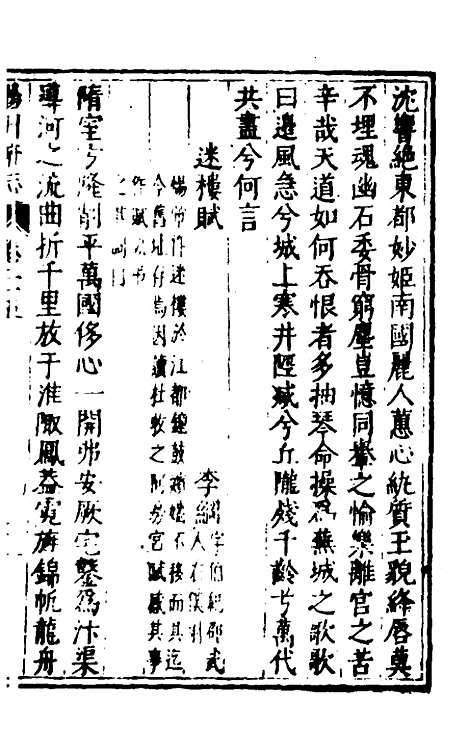 沈響絕東都妙姬南國麗人蕙心紈質玉貌絳唇莫
不埋魂幽石委骨窮塵豈憶同轝之愉樂離宮之苦
辛哉天道如何吞恨者多抽琴命操爲蕪城之歌歌
曰邊風急兮城上寒井陘滅兮丘隴殘千齡兮萬代
共盡兮何言
迷樓賦
李綱字伯紀邵武人在
煬帝作迷樓於江都鐘鼓嬪嬙不移而具迄
今舊址存焉因讀杜牧之阿房宮賦感其事
作賦
隋室兮隆削平萬國侈心一開弗安厥宅鑿爲汴渠
導河之流曲折千里放于淮陬鳳葢霓旌錦帆龍舟
揚州府志